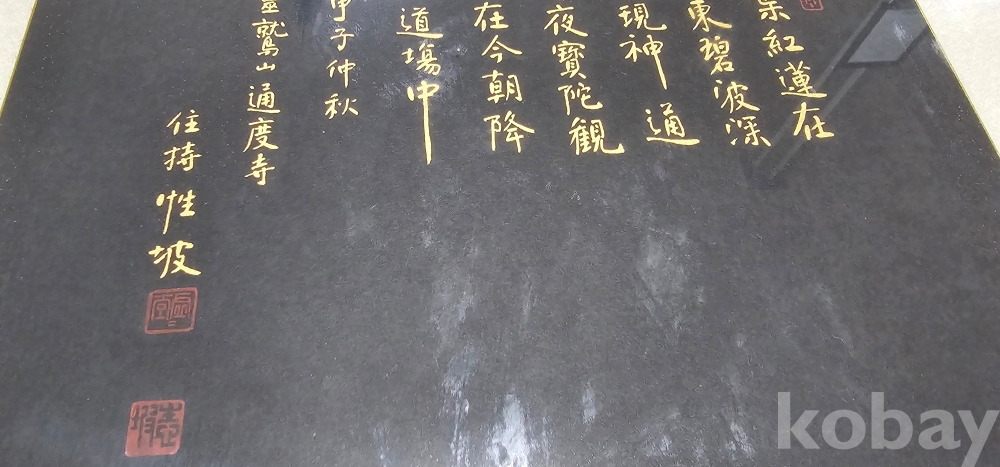 朶紅蓮在
東碧波深
現神通
夜寶陀觀
在今朝降
道場中
甲子仲秋
靈鷲山通度寺
住持性坡
kobay